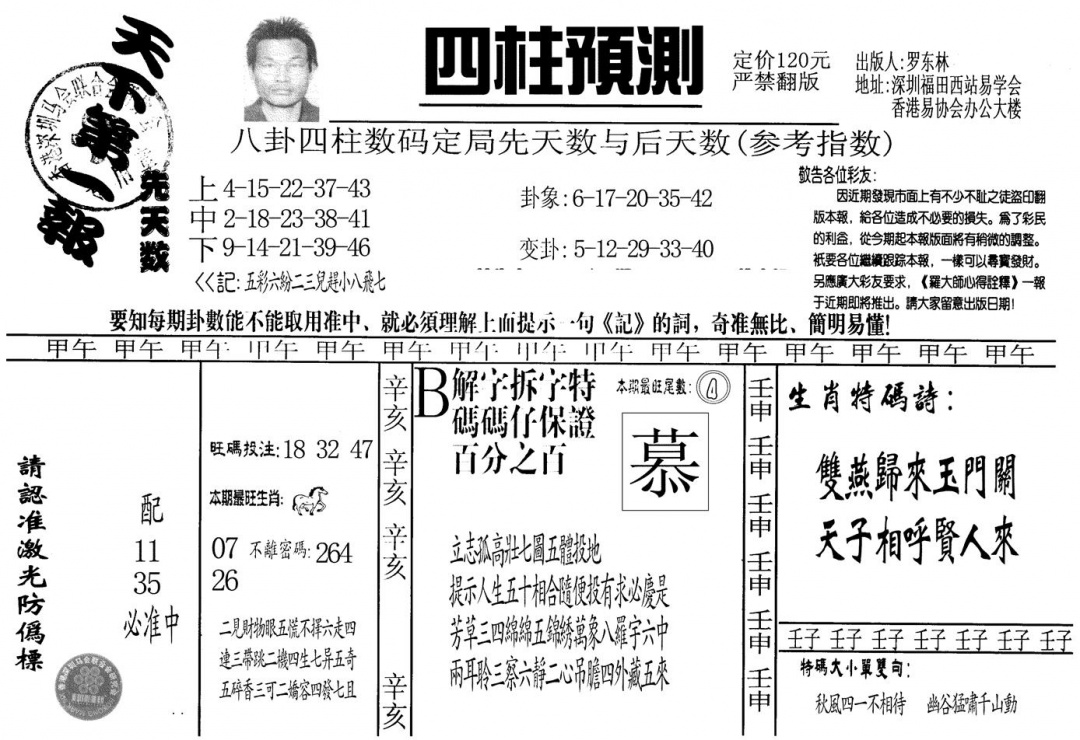 天下第一報
先天数
四柱預測
定价120元
严禁翻版
出版人:罗东林
地址:深圳福田西站易学会
香港易协会办公大楼
八卦四柱数码定局先天数与后天数(参考指数)
上4-15-22-37-43
中2-18-23-38-41
下9-14-21-39-46
<<記:五彩六紛二三兒趕小八飛七
卦象:6-17-20-35-42
变卦:5-12-29-33-40
敬告各位彩友:
因近期發現市面上有不少不耻之徒盜印翻
版本報，給各位造成不必要的損失。爲了彩民
的利益，從今期起本報版面將有稍微的調整。
衹要各位繼續跟踪本報，一樣可以尋寶發財。
另應廣大彩友要求，《羅大師心得詮釋》一報
于近期即將推出。請大家留意出版日期!
要知每期卦數能不能取用准中、就必須理解上面提示一句《記》的詞，奇准無比、簡明易懂!
甲午 甲午 甲午 甲午 甲午 甲午 甲午 甲午 甲午 甲午 甲午 甲午 甲午 甲午 甲午
請認准激光防僞標
配
11
35
必准中
旺碼投注:18 32 47
本期最旺生肖:
07 不離密碼:264
26
二見財物眼五慌不擇六走四
連三帶跳二機四生七昇五奇
五碎香三可二嬌容四發七且
辛亥
辛亥
辛亥
辛亥
B解字拆字特
碼碼仔保證
百分之百
本期最旺尾數:
慕
立志孤高壯七圖五體投地
提示人生五十相合隨便投有求必慶是
芳草三四綿綿五錦綉萬象八羅宇六中
兩耳聆三察六靜二心吊膽四外藏五來
壬申
壬申
壬申
壬申
壬申
壬申
生肖特碼詩:
雙燕歸來玉門關
天子相呼賢人來
壬子 壬子 壬子 壬子 壬子 壬子 壬子
特碼大小單雙句:
秋風四一不相待 幽谷猛嘯千山動